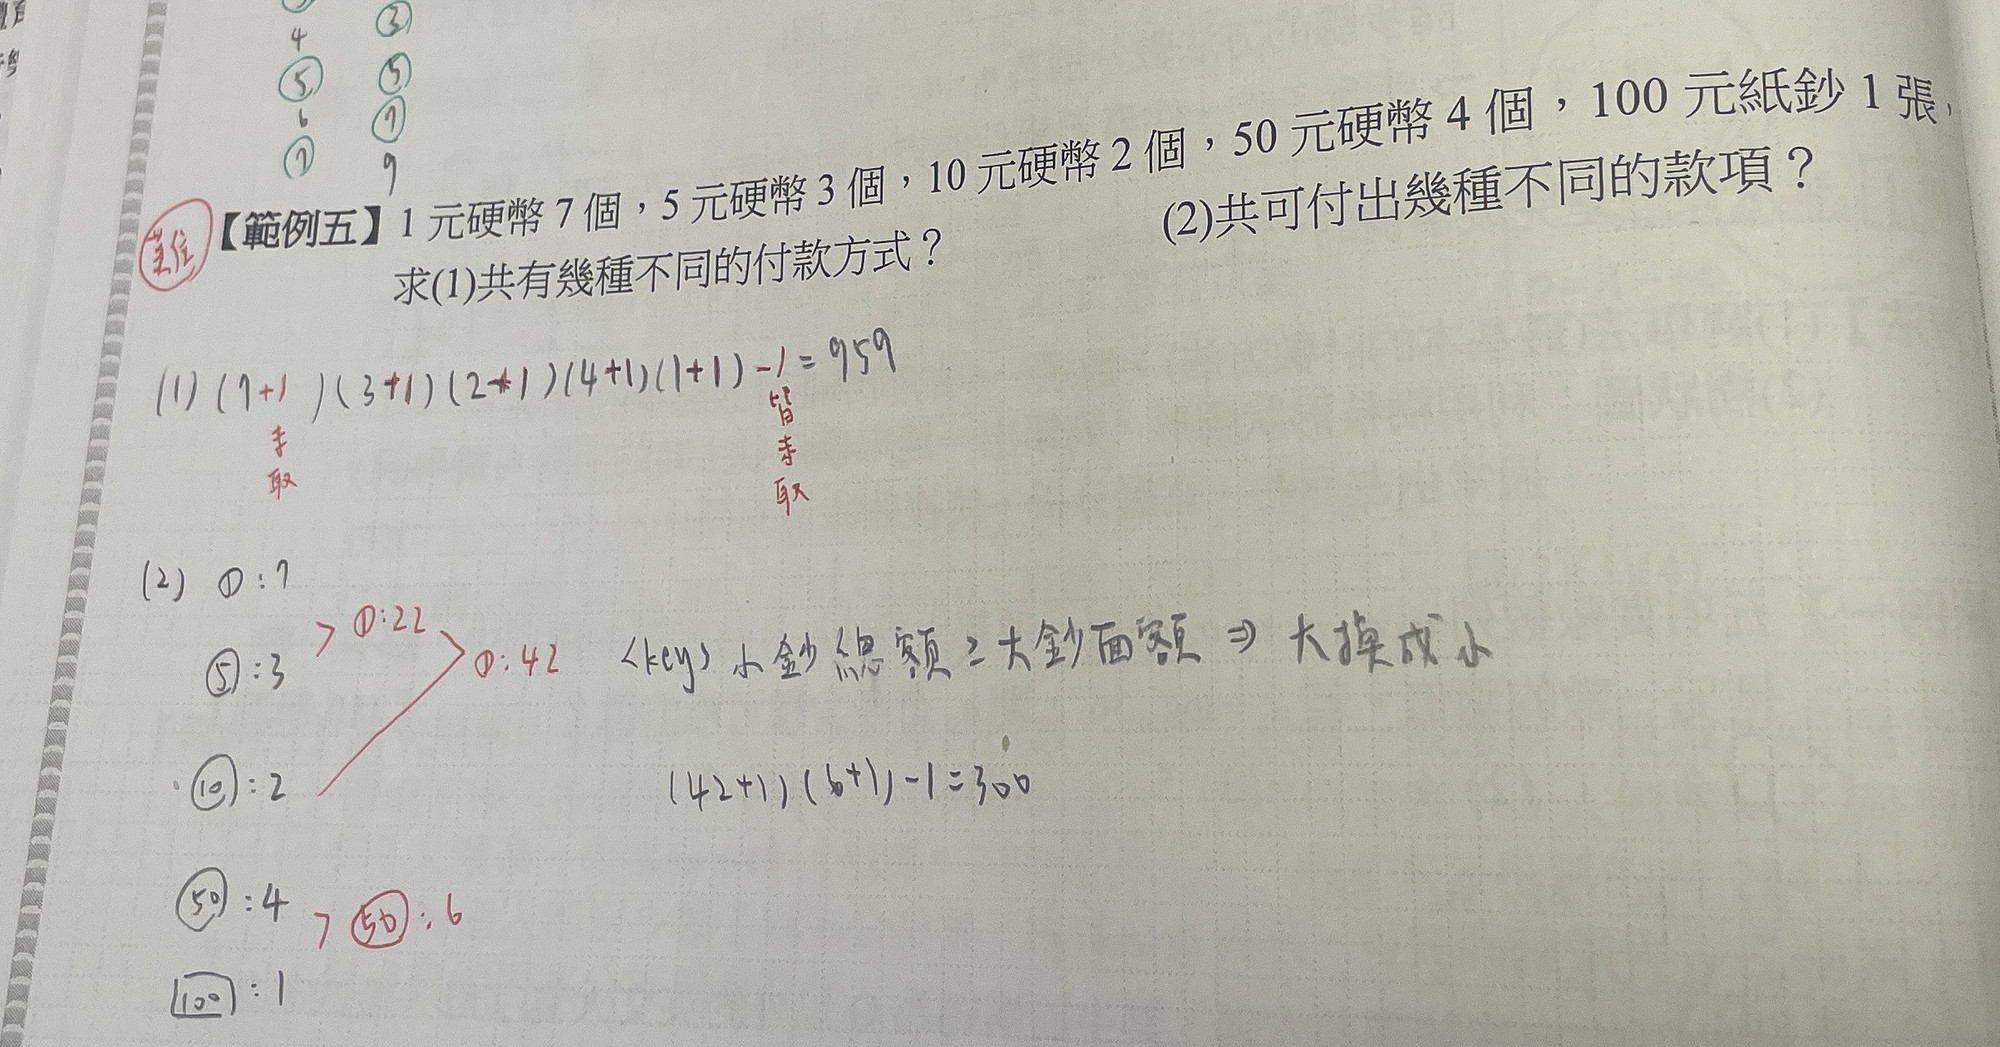 4 ③
⑤ ⑤
6 ⑦
⑦ 9
【範例五】1 元硬幣 7 個，5 元硬幣 3 個，10 元硬幣 2 個，50 元硬幣 4 個，100 元紙鈔 1 張，
求(1)共有幾種不同的付款方式？ (2)共可付出幾種不同的款項？
(1) (7+1)(3+1)(2+1)(4+1)(1+1)-1=959
未取 皆未取
(2) ①:7
> ①:22
⑤:3 ①:42 <key> 小鈔總額≥大鈔面額⇒大換成小
⑩:2 (42+1)(6+1)-1=300
㊿:4 > ㊿:6
100:1